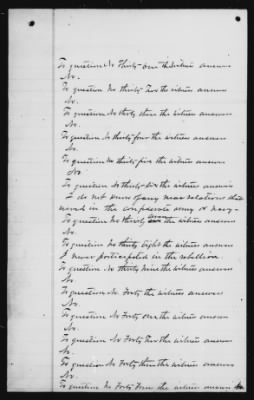 To question No Thirty-one the witness answers
No.
To question No thirty Two the witness answers
No.
To question No thirty three the witness answers
No.
To question No thirty four the witness answers
No.
To question No thirty five the witness answers
No.
To question No thirty six the witness answers
I do not know of any near relations that
served in the confederate army or navy-
To question No thirty seven the witness answers
No.
To question No thirty eight the witness answers
I never participated in the rebellion.
To question No thirty nine the witness answers
No.
To question No Forty the witness answers
No.
To question No Forty one the witness answers
No.
To question No Forty Two the witness answers
No.
To question No Forty three the witness answers
No.
To question No Forty Four the witness answers